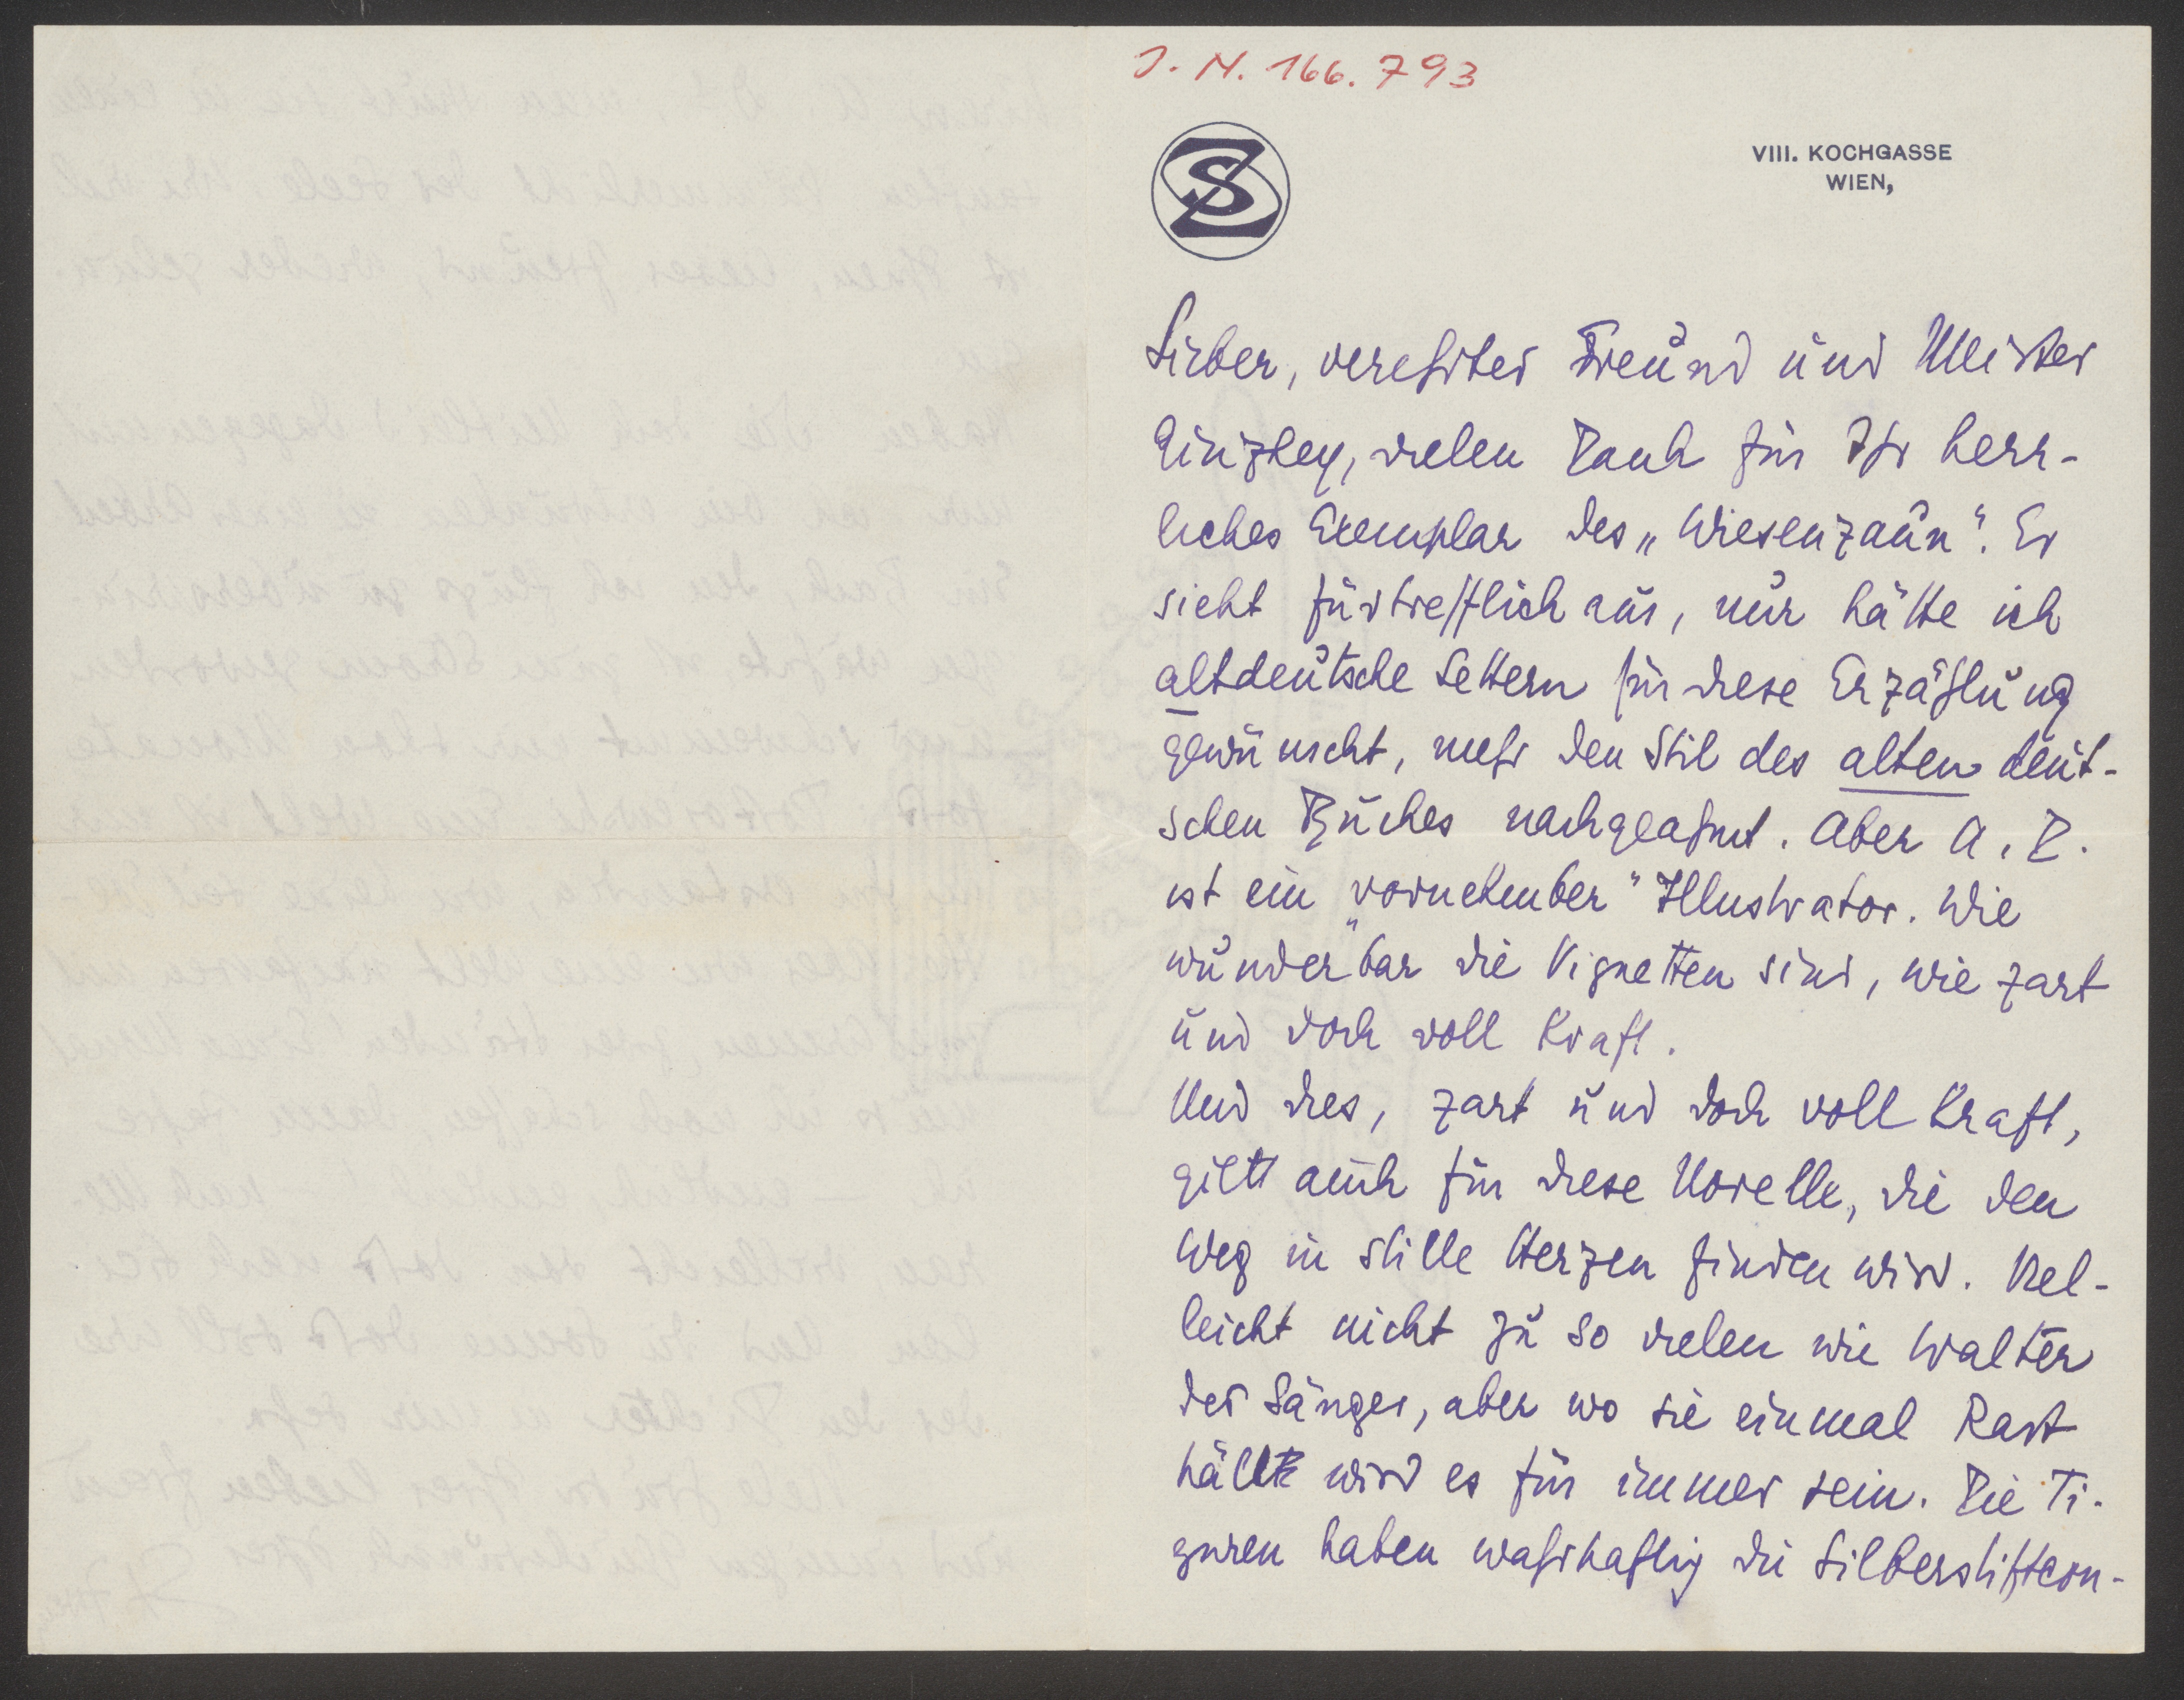 J. N. 166.793
SZ
VIII. KOCHGASSE
WIEN,
Lieber, verehrter Freund und Meister
Ginzkey, vielen Dank für Ihr herr-
liches Exemplar des „Wiesenzaun“. Er
sieht fürtrefflich aus, nur hätte ich
altdeutsche Lettern für diese Erzählung
gewünscht, mehr den Stil des alten deut-
schen Buches nachgeahmt. Aber A. D.
ist ein „vornehmber“ Illustrator. Wie
wunderbar die Vignetten sind, wie zart
und doch voll Kraft.
Und dies, zart und doch voll Kraft,
gilt auch für diese Novelle, die den
Weg in stille Herzen finden wird. Viel-
leicht nicht zu so vielen wie Walter
der Sänger, aber wo sie einmal Rast
hält wird es für immer sein. Die Fi-
guren haben wahrhaftig die Silberstiftcon-